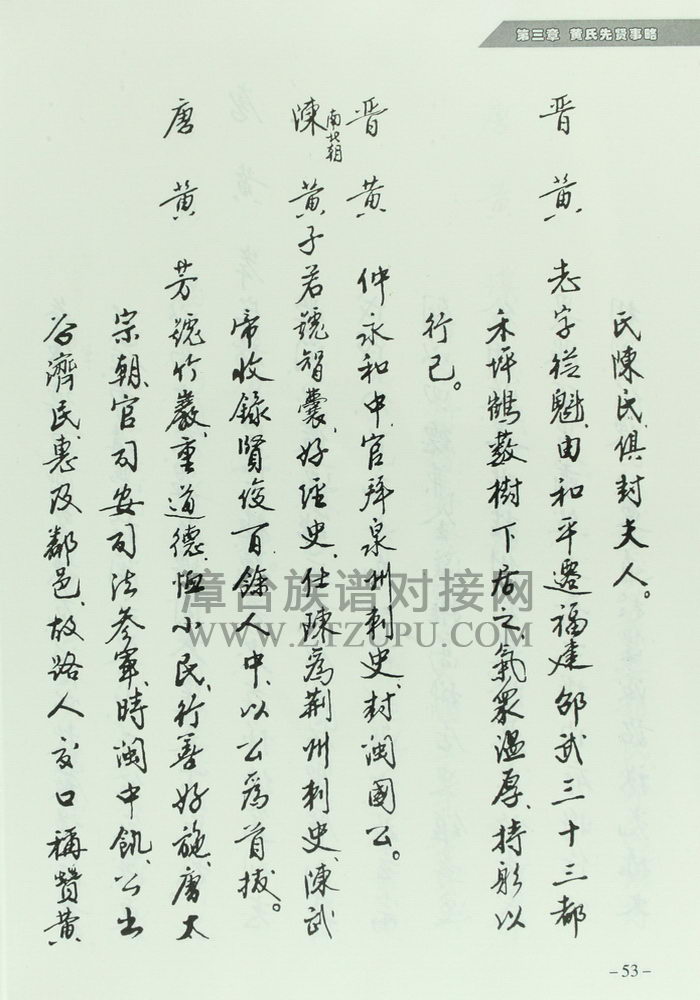 第三章 黄氏先贤事略
氏陳氏俱封夫人。
晋 黄 志字從魁、由和平遷福建邵武三十三都
禾坪鶴薮樹下居之、氣衆温厚、持躬以
行己。
晋 黄 仲永和中、官拜泉州刺史、封閩國公。
陳 南北朝 黄子若號智囊、好經史、仕陳為荆州刺史、陳武
帝收録賢俊百餘人中、以公為首拔。
唐 黄 芳號竹巖、重道德、恤小民、行善好施、唐太
宗朝、官司安司法參軍、時閩中飢、公出
谷濟民、惠及鄰邑、故路人交口稱贊黄
漳台族谱对接网
WWW.ZTZUPU.COM
-53-